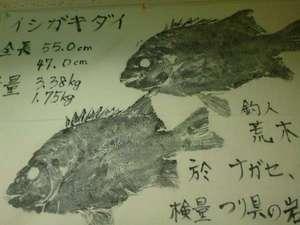 イシガキダイ
全長 55.0cm
47.0cm
量 3.38kg
1.75kg
釣人
荒木
於 ナガセ、
検量 つり具の岩